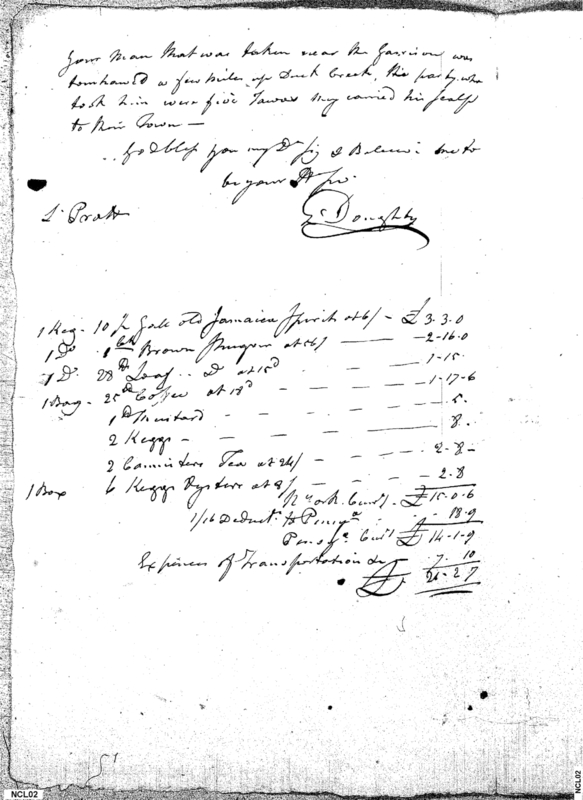 Your Man that was taken near the Garrison was
tomhawed a few miles up Duck Creek, the party who
took him were five Tawas they carried his scalp
to their Town —
God bless you my Dr Sir & Believe me to
be your Ft Sir
Lt Pratt
Jn Doughty
1 Keg - 10 ½ Galls old Jamaica Spirit at 6/ — £ 3.3.0
1 Do. 1 Ct Brown Sugar at 56/ — 2-16.0
1 D. 28 lb Loaf .. D at 15d — 1-15.
1 Bag - 25 lb Coffee at 18d — 1-17-6
1 lb Mustard — 5.
2 Keggs — 8.
2 Cannisters Tea at 24/ — 2.8-
1 Box 6 Keggs Oysters at 8/ — 2.8
N York Curry. £ 15.0.6
1/16 Deduct. to Pensya - 18.9
Pensya. Curr £ 14-1-9
Expences of Transportation &c 7.10
£ 21-2.7
NCL02
NCL02